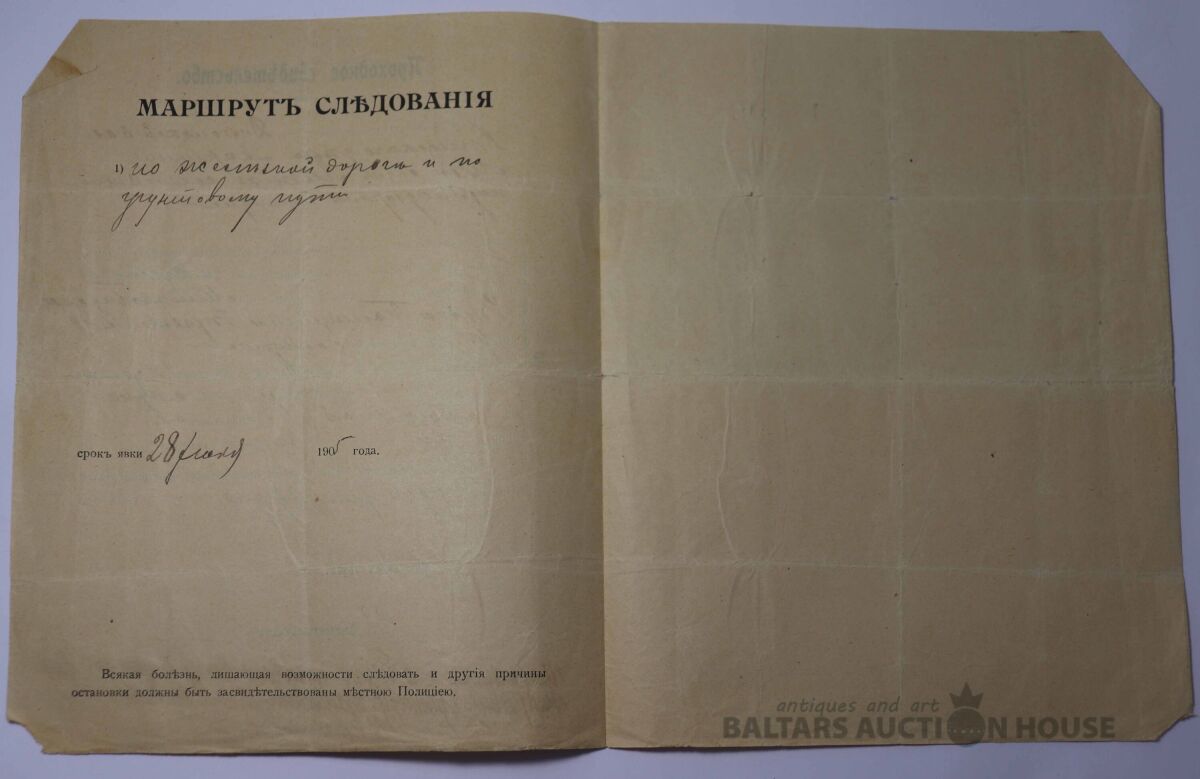 МАРШРУТЪ СЛѢДОВАНІЯ
1) по желѣзной дорогѣ и по
грунтовому пути
срокъ явки 28 1905 года.
Всякая болѣзнь, лишающая возможности слѣдовать и другія причины
остановки должны быть засвидѣтельствованы мѣстною Полиціею.
antiques and art
BALTARS AUCTION HOUSE